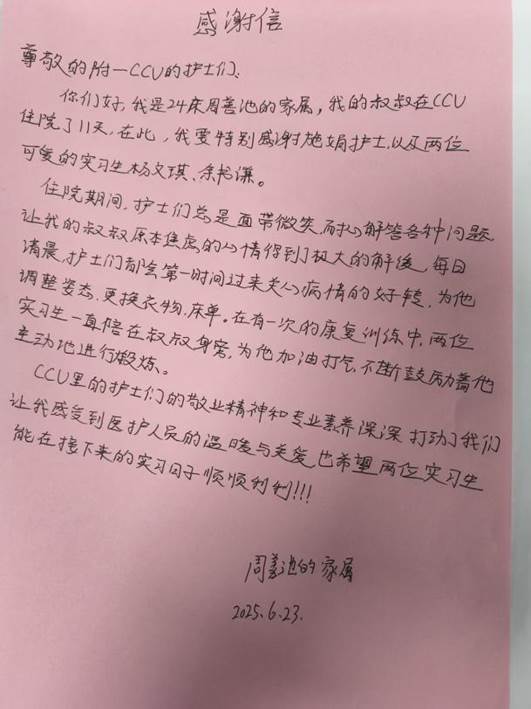 感谢信
尊敬的附一CCU的护士们:
你们好,我是24床周善池的家属,我的叔叔在CCU
住院了11天,在此,我要特别感谢施娟护士,以及两位
可爱的实习生杨文琪、余艺潇。
住院期间,护士们总是面带微笑,耐心解答各种问题
让我的叔叔原本焦虑的心情得到了极大的解缓,每日
清晨,护士们都会第一时间过来关心病情的好转,为他
调整姿态、更换衣物、床单。在有一次的康复训练中,两位
实习生一直陪在叔叔身旁,为他加油打气,不断鼓励着他
主动地进行锻炼。
CCU里的护士们的敬业精神和专业素养深深打动了我们
让我感受到医护人员的温暖与关爱,也希望两位实习生
能在接下来的实习日子顺顺利利!!!
周善池的家属
2025.6.23.